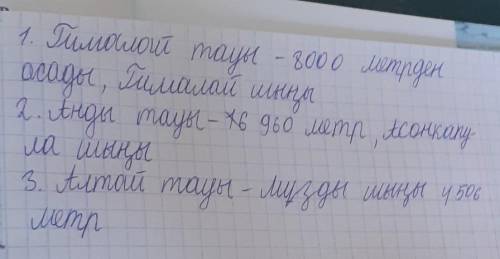 1. Гималай тауы - 8000 метрден
асады, Гималай шыңы
2. Анды тауы - 6 960 метр, Асонкагу-
ла шыңы
3. Алтай тауы - Мұзды шыңы 4 506
метр